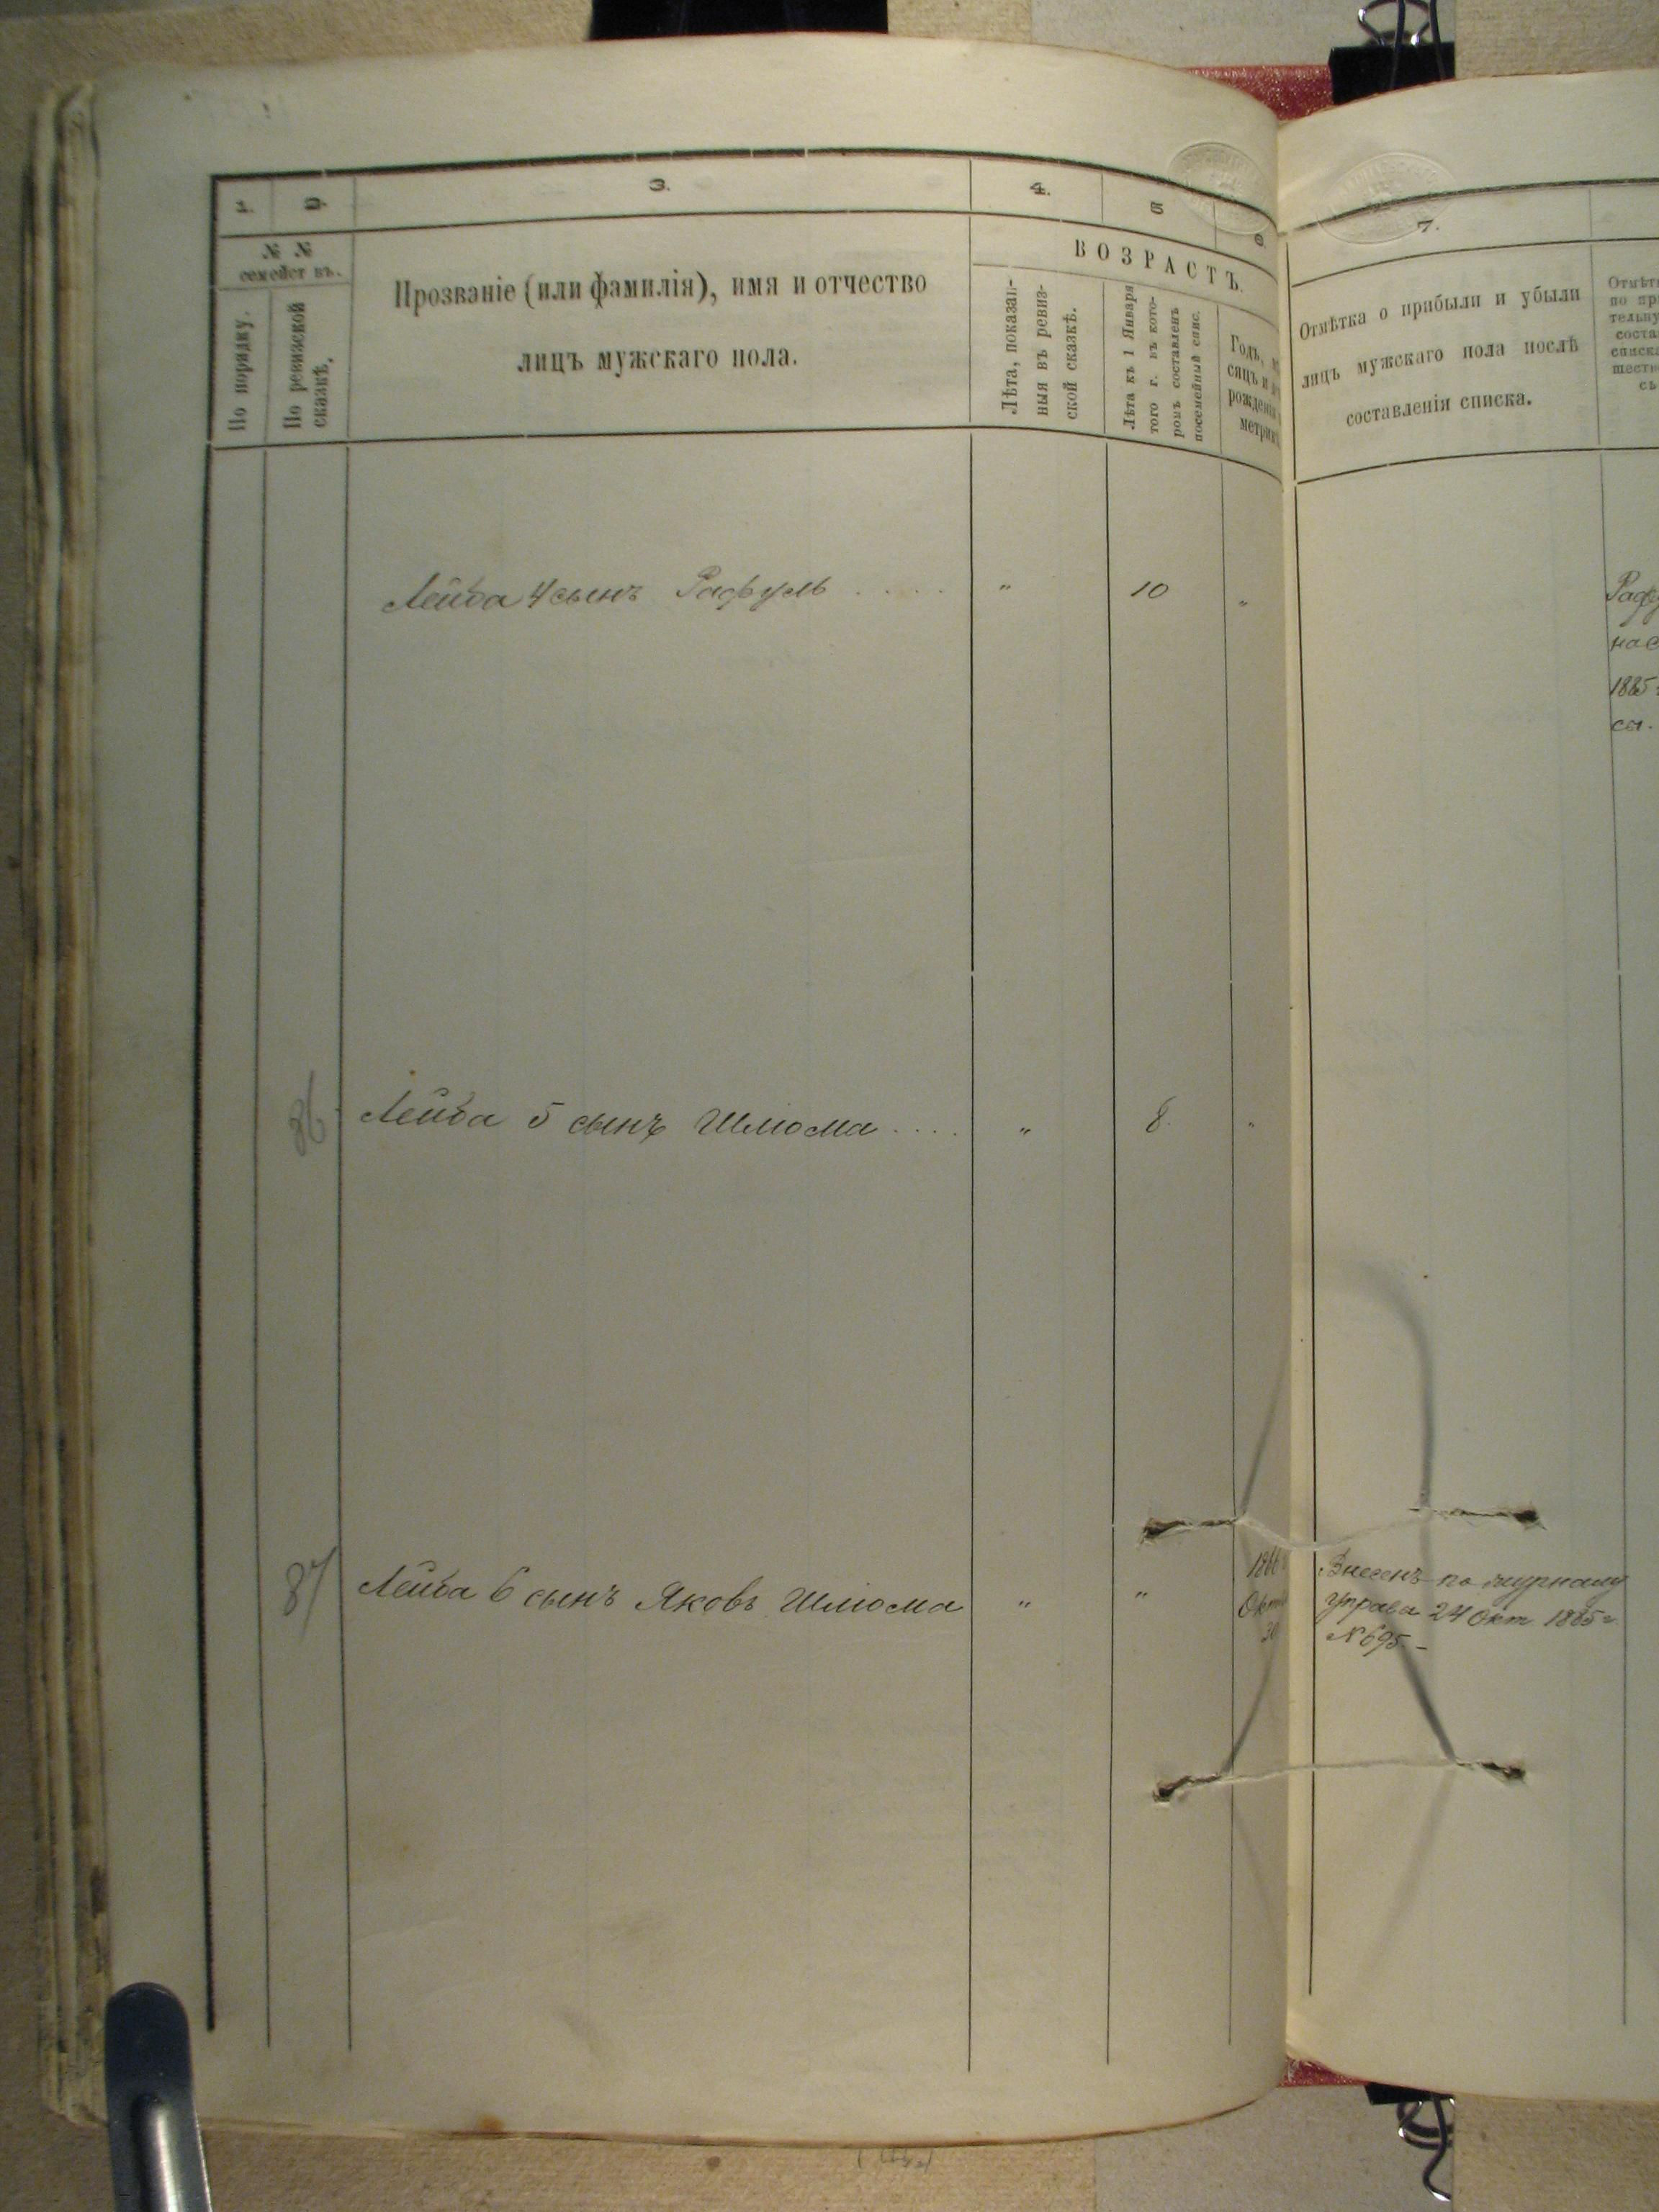 1.
2.
3.
4.
5
6.
7.
№ №
семействъ.
По порядку.
По ревизской
сказкѣ.
Прозваніе (или фамилія), имя и отчество
лицъ мужскаго пола.
ВОЗРАСТЪ.
Лѣта, показан-
ныя въ ревиз-
ской сказкѣ.
Лѣта къ 1 Января
того г. въ кото-
ромъ составленъ
посемейный спис.
Годъ, мѣ
сяцъ и
рожденія
метрик
Отмѣтка о прибыли и убыли
лицъ мужскаго пола послѣ
составленія списка.
Отмѣт
по пр
тельну
соста
списк
шеств
сь
Лейба 4 сынъ Рафуль . . . . . " 10 "
Раф
нас
1885
сы.
86 Лейба 5 сынъ Шлюома . . . . " 8. "
87 Лейба 6 сынъ Яковъ Шлюома " "
1866
Окт
30
Внесенъ по журналу
управа 24 Окт 1885 г.
№ 695. —